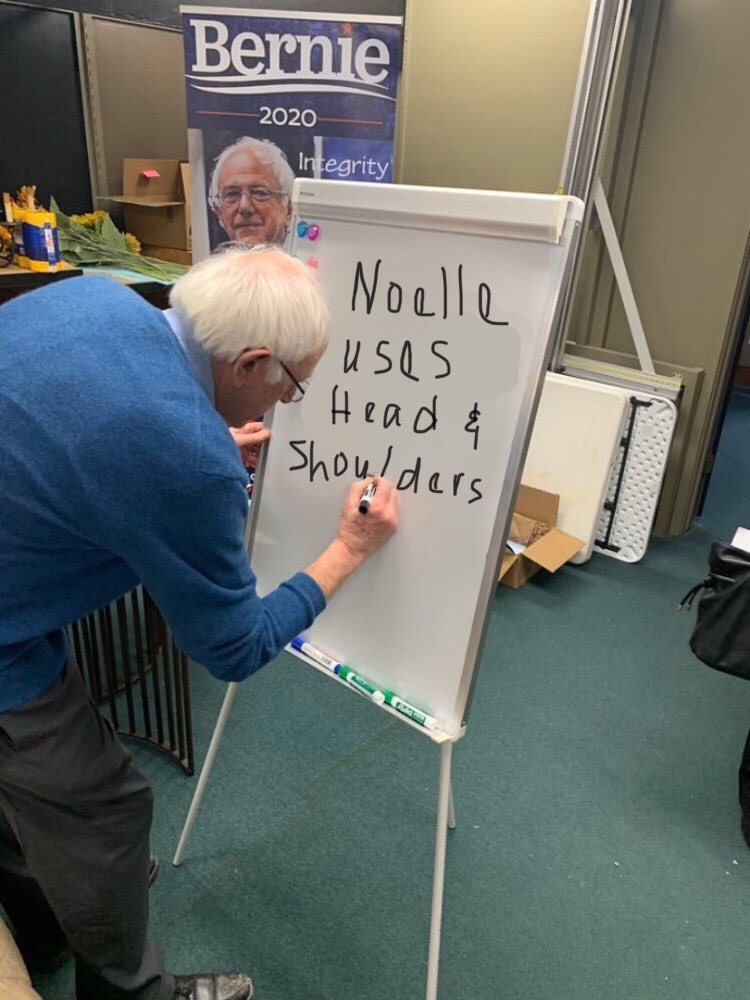 Bernie
2020
Integrity
Noelle
uses
Head &
Shoulders